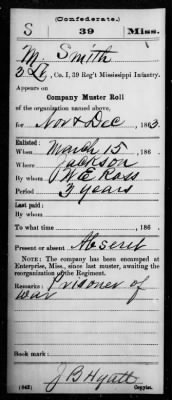 (Confederate.)
S 39 Miss.
M Smith
2 Lt, Co. I, 39 Reg't Mississippi Infantry.
Appears on
Company Muster Roll
of the organization named above,
for Nov & Dec, 1863.
Enlisted:
When March 15, 186
Where Jackson
By whom W E Ross
Period 3 years
Last paid:
By whom
To what time , 186
Present or absent Absent
NOTE: The company has been encamped at
Enterprise, Miss., since last muster, awaiting the
reorganization of the Regiment.
Remarks: Prisoner of
war
Book mark:
J B Hyatt
(642) Copyist.